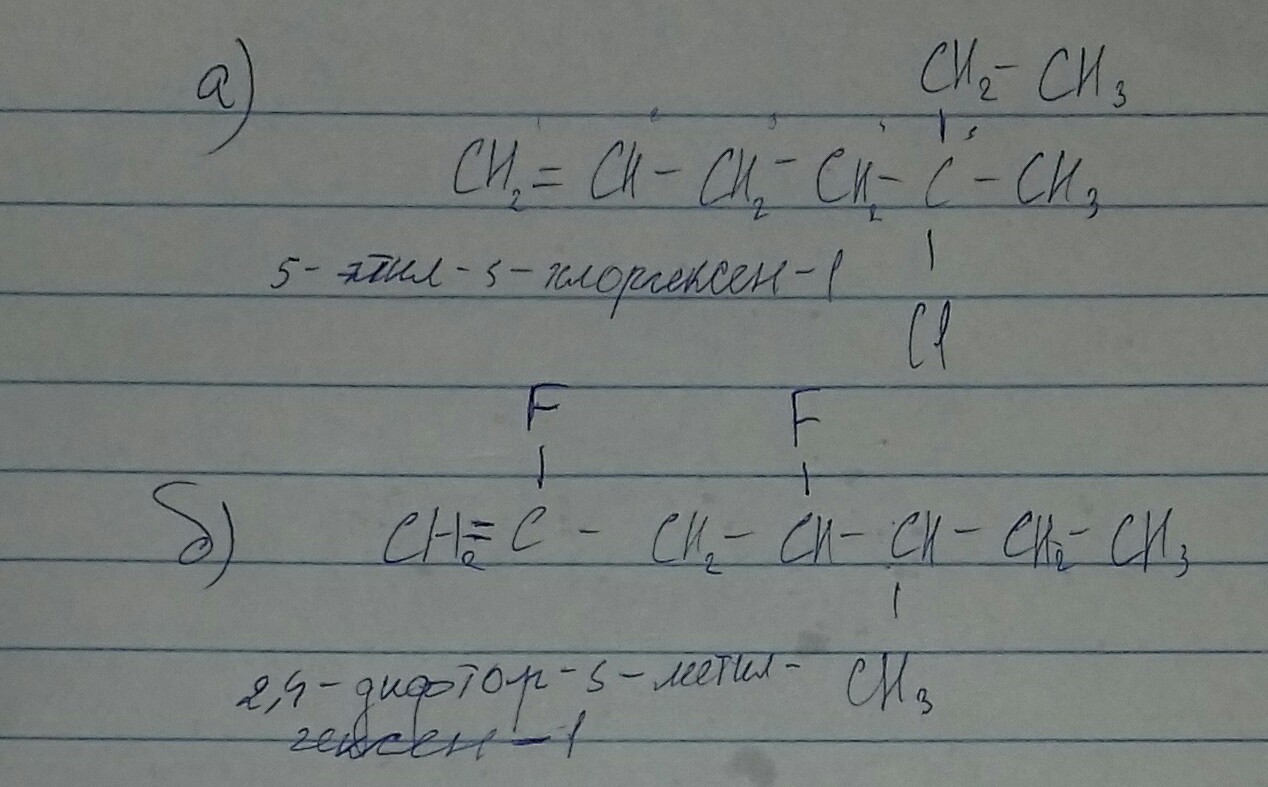 а)
CH₂ - CH₃
CH₂ = CH - CH₂ - CH₂ - C - CH₃
5 - этил - 5 - хлоргексен - 1
Cl
F F
б) CH₂ = C - CH₂ - CH - CH - CH₂ - CH₃
2,4 - дифтор - 5 - метил -
CH₃
гексен - 1